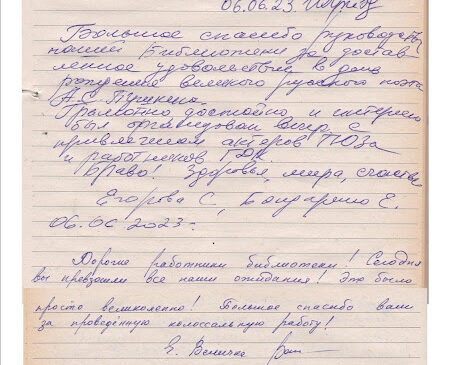 06.06.23
Большое спасибо руководству
нашей библиотеки за достав
ленное удовольствие в день
рождения великого русского поэта
А.С. Пушкина.
Грамотно достойно и интересно
был организован вечер с
привлечением актеров ТЮЗа
и работников ГДК.
Браво! Здоровья, мира, счастья
Егорова С, Бондаренко Е.
06.06 2023г
Дорогие работники библиотеки! Сегодня
вы превзошли все наши ожидания! Это было
просто великолепно! Большое спасибо вам
за проведённую колоссальную работу!